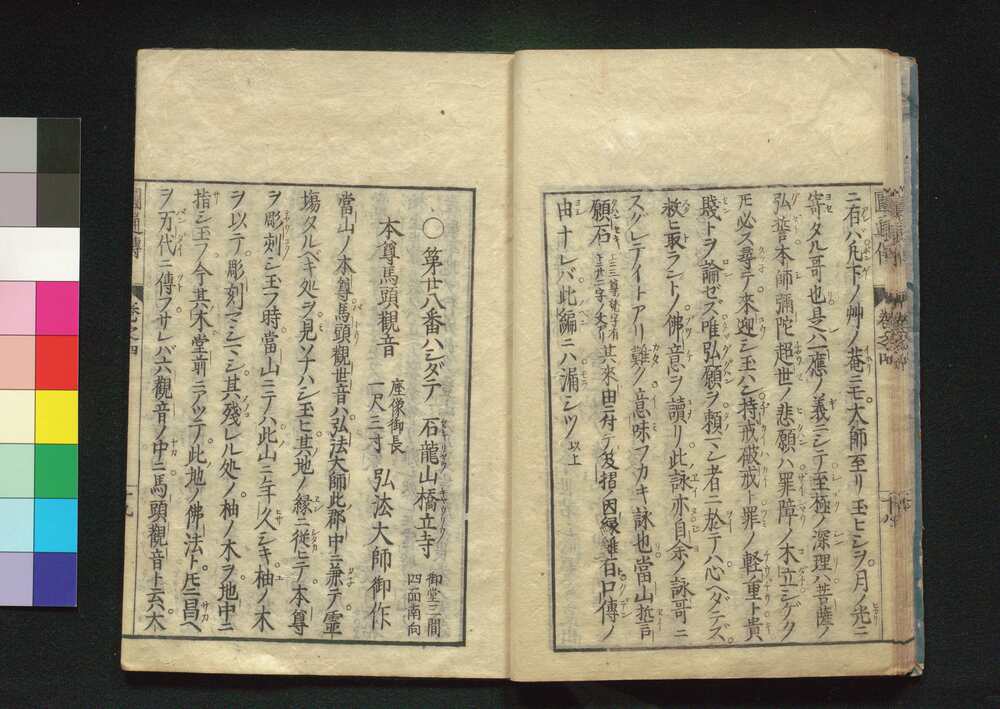 ニ有ハ凡下ノ艸ノ菴ニモ大師至リ玉ヒシヲ月ノ光ニ
寄タル哥也是ハ一應ノ義ニシテ至極ノ深理ハ菩薩ノ
弘誓本師彌陀超世ノ悲願ハ罪障ノ木立シゲク
モ必ス尋テ來迎シ玉ハン持戒破戒ト罪ノ軽重ト貴
賤トヲ論ゼズ唯弘願ヲ頼マン者ニ於テハ心ヘダテズ
救ヒ取ラントノ佛意ヲ讀リ此詠亦自余ノ詠哥ニ
スグレテイトアリ難ク意味フカキ詠也當山誓言
願石其來由ニ付テ及招ノ因縁雖有口傳ノ
由ナレバ此編ニハ漏シツ 以上
圓通傳 巻之四
〇 第廿八番ハシダテ 石龍山橋立寺 御堂三間四面南向
本尊馬頭觀音 座像御長一尺三寸 弘法大師御作
當山ノ本尊馬頭觀世音ハ弘法大師此郡中ニ兼テ霊
塲タルベキ処ヲ見ソナハシ玉ヒ其地ノ縁ニ従ニテ本尊
ヲ彫刻シ玉フ時當山ニテハ此山ニ年久シキ柚ノ木
ヲ以テノ彫刻マシマシ其残レル処ノ柚ノ木ヲ地中ニ
指シ玉フノ今其木堂前ニアツテ此地ノ佛法トモニ昌ヘ
ヲ万代ニ傳フサレバ六觀音ノ中ニ馬頭觀音ト云六大
圓通傳 巻之四